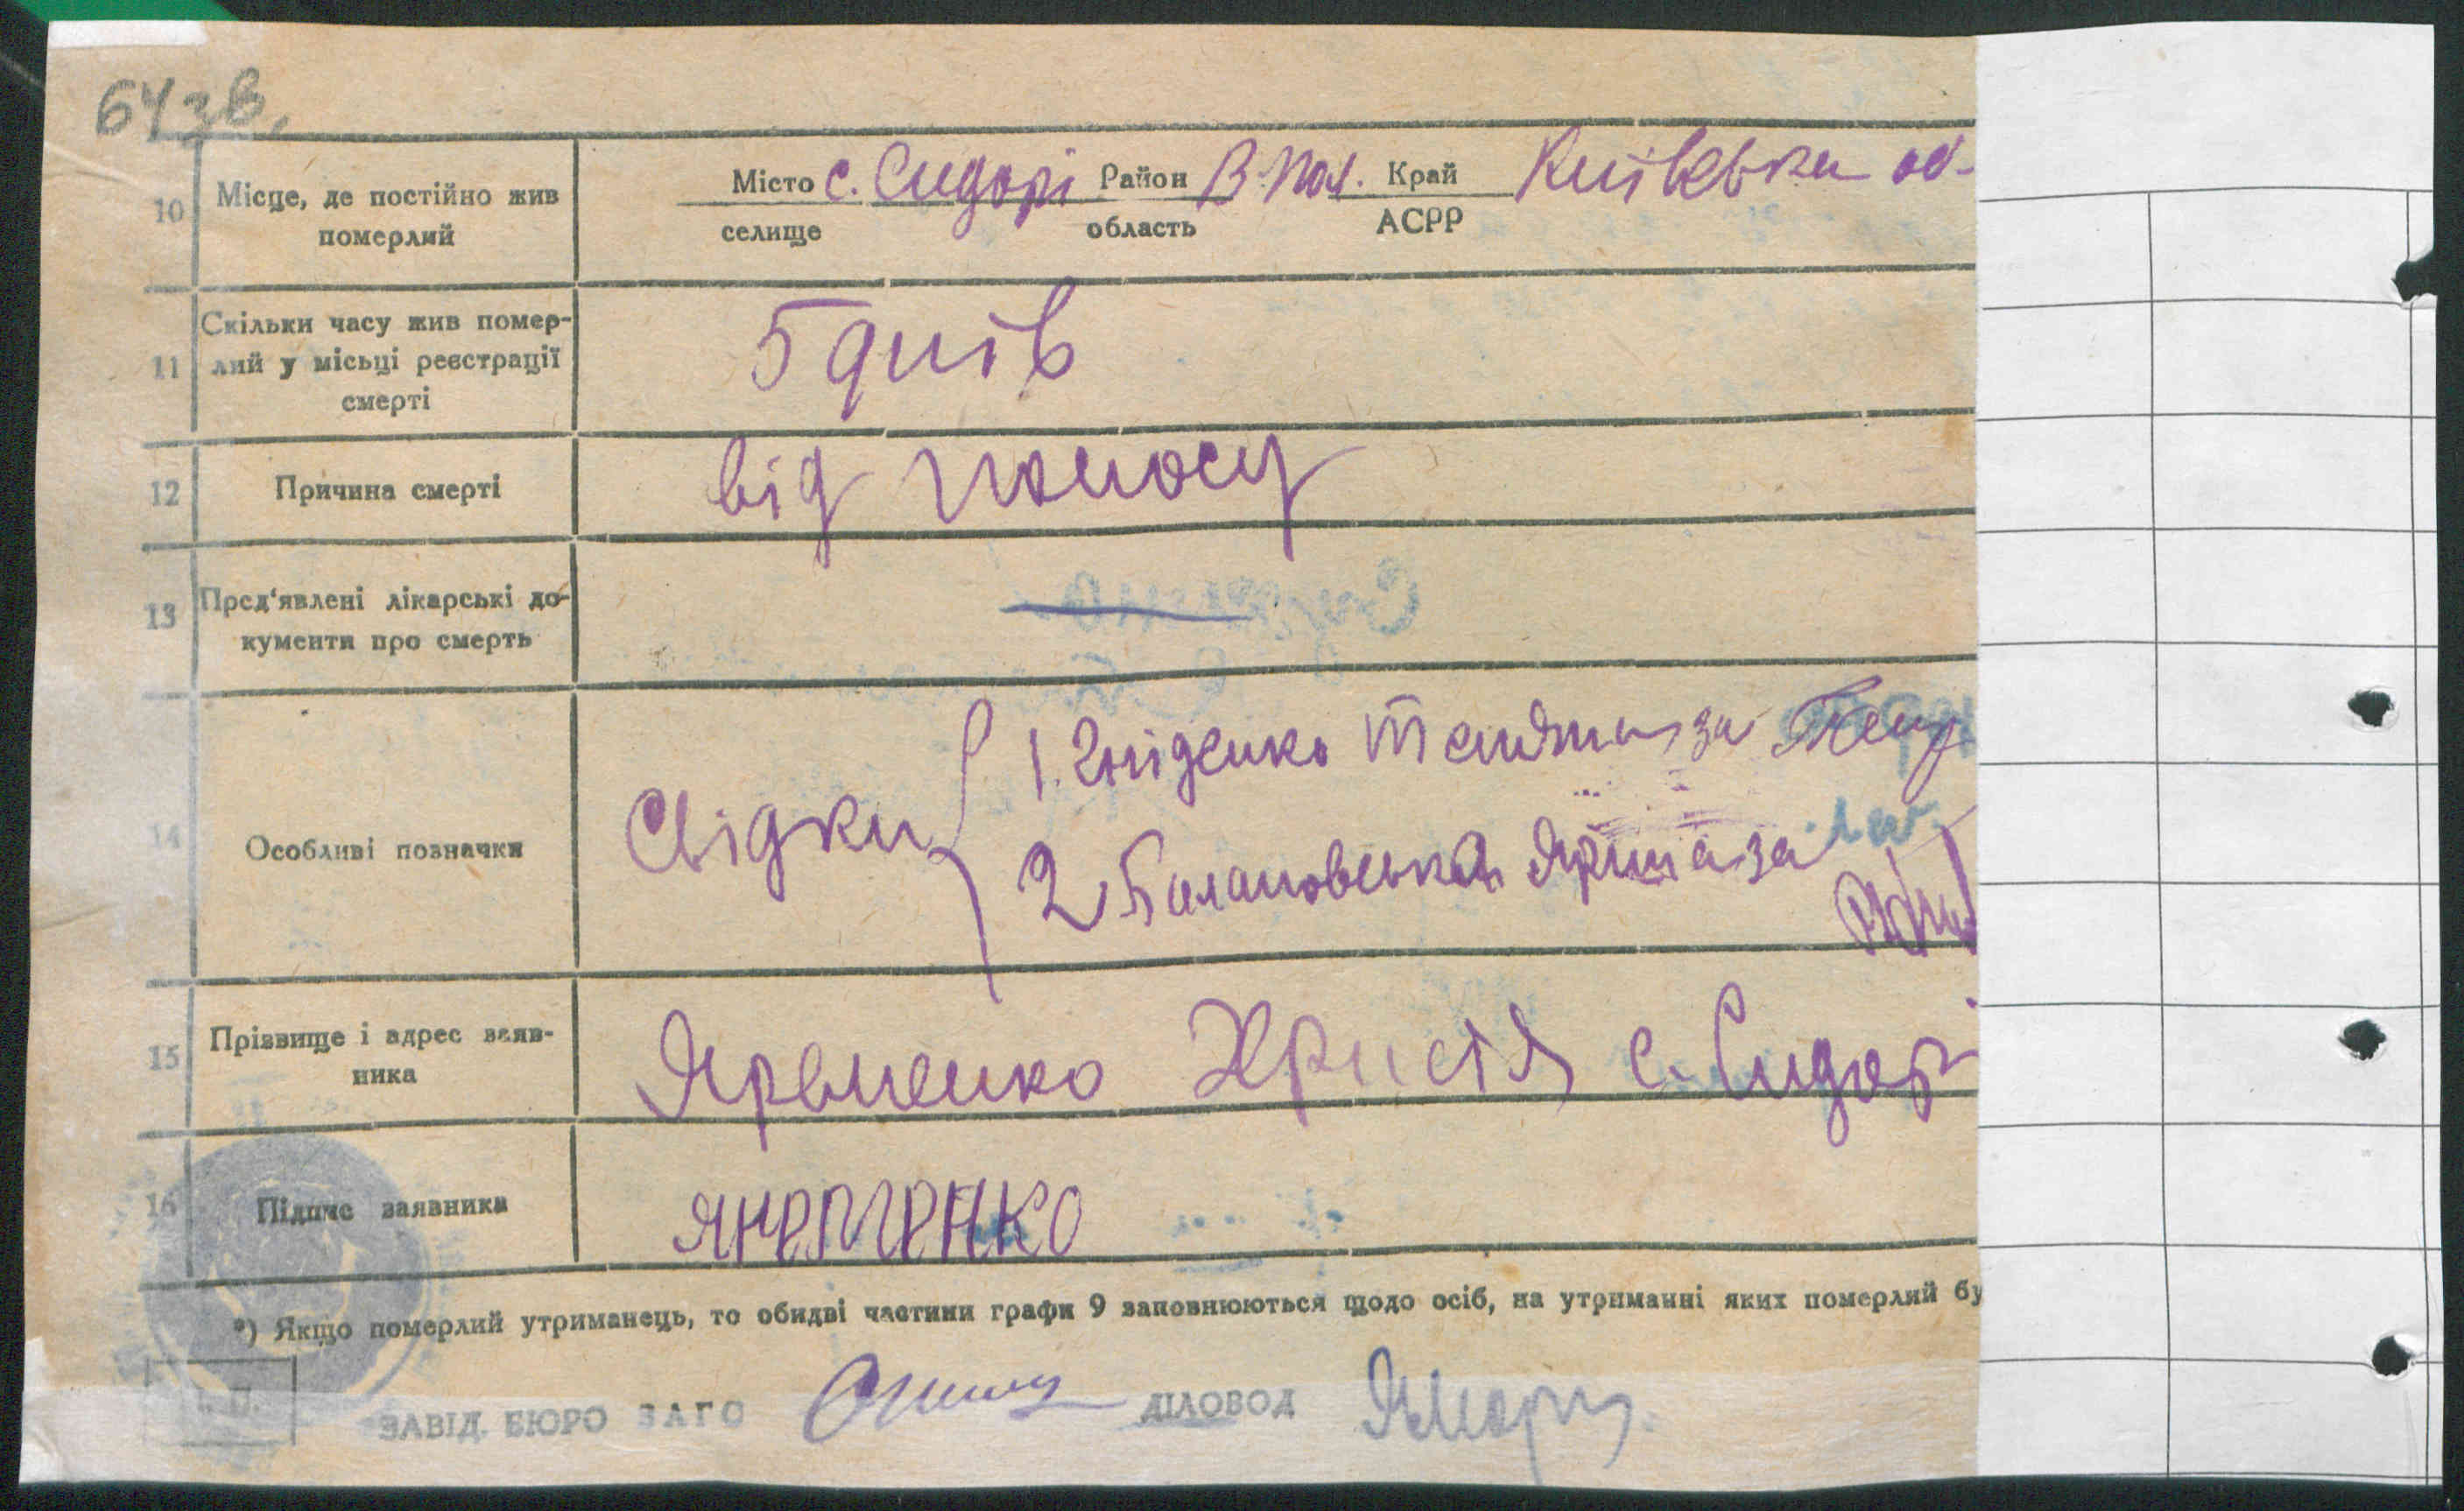 64зв.
10 Місце, де постійно жив померлий
Місто с. Сидорі Район В-Пол. Край Київська об-
селище область АСРР
11 Скільки часу жив помер-
лий у місьці реєстрації
смерті
5 днів
12 Причина смерті від поносу
13 Пред'явлені лікарські до-
кументи про смерть
14 Особливі позначки
Свідки
1. Гніденко Тетяна за
2 Балановська Ярина за
15 Прізвище і адрес заяв-
ника
Яременко Христя с. Сидор
16 Підпис заявника
*) Якщо померлий утриманець, то обидві частини графи 9 заповнюються щодо осіб, на утриманні яких померлий бу
ЗАВІД. БЮРО ЗАГС ДІЛОВОД